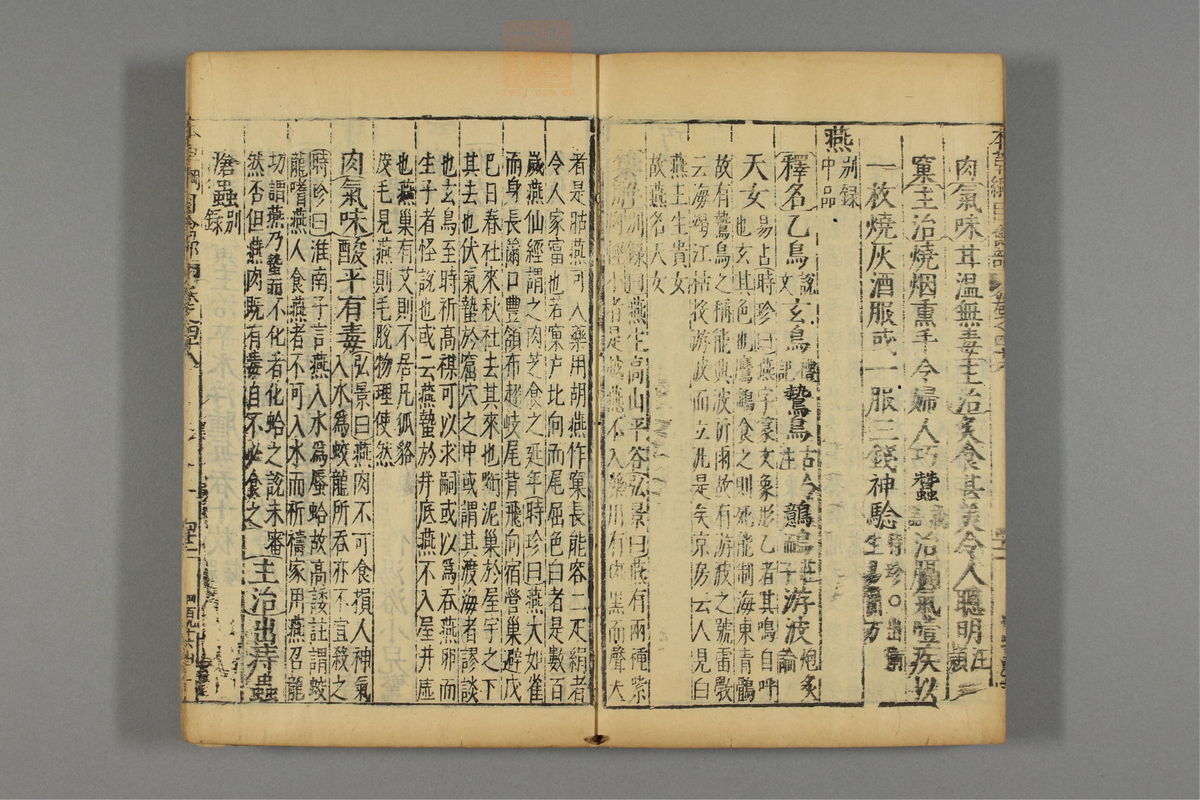 肉氣味甘溫無毒主治炙食甚美令人聰明汪頴
窠主治燒烟熏手令婦人巧蠶治膈氣噎疾以
一枚燒灰酒服或一服三錢神驗時珍○出生生易簡方
燕別録中品
釋名乙鳥說文玄鳥禮記鷙鳥古今注鷾鴯莊子游波炮炙論
天女易占時珍曰燕字篆文象形乙者其鳴自呼
也玄其色也鷹鷂食之則死能制海東青鶻
故有鷙鳥之稱能興波祈雨故有游波之號雷斅
云海竭江枯投游波而立汎是矣京房云人見白
燕主生貴女
故燕名天女
集解別録曰燕生高山平谷弘景曰燕有兩種紫
胸輕小者是越燕不入藥用有斑黑而聲大
者是胡燕可入藥用胡燕作窠長能容二疋絹者
令人家富也若窠戶北向而尾屈色白者是數百
歲燕仙經謂之肉芝食之延年時珍曰燕大如雀
而身長籋口豐頷布翅岐尾背飛向宿營巢避戊
巳日春社來秋社去其來也啣泥巢於屋宇之下
其去也伏氣蟄於窟穴之中或謂其渡海者謬談
也玄鳥至時祈高禖可以求嗣或以爲吞燕卵而
生子者怪說也或云燕蟄於井底燕不入屋井虛
也燕巢有艾則不居凡狐貉
皮毛見燕則毛脫物理使然
肉氣味酸平有毒弘景曰燕肉不可食損人神氣
入水爲蛟龍所吞亦不宜殺之
時珍曰淮南子言燕入水爲蜃蛤故高誘註謂蛟
龍嗜燕人食燕者不可入水而祈禱家用燕召龍
切謂燕乃蟄而不化者化蛤之說未審
然否但燕肉既有毒自不必食之主治出痔蟲
瘡蟲別録